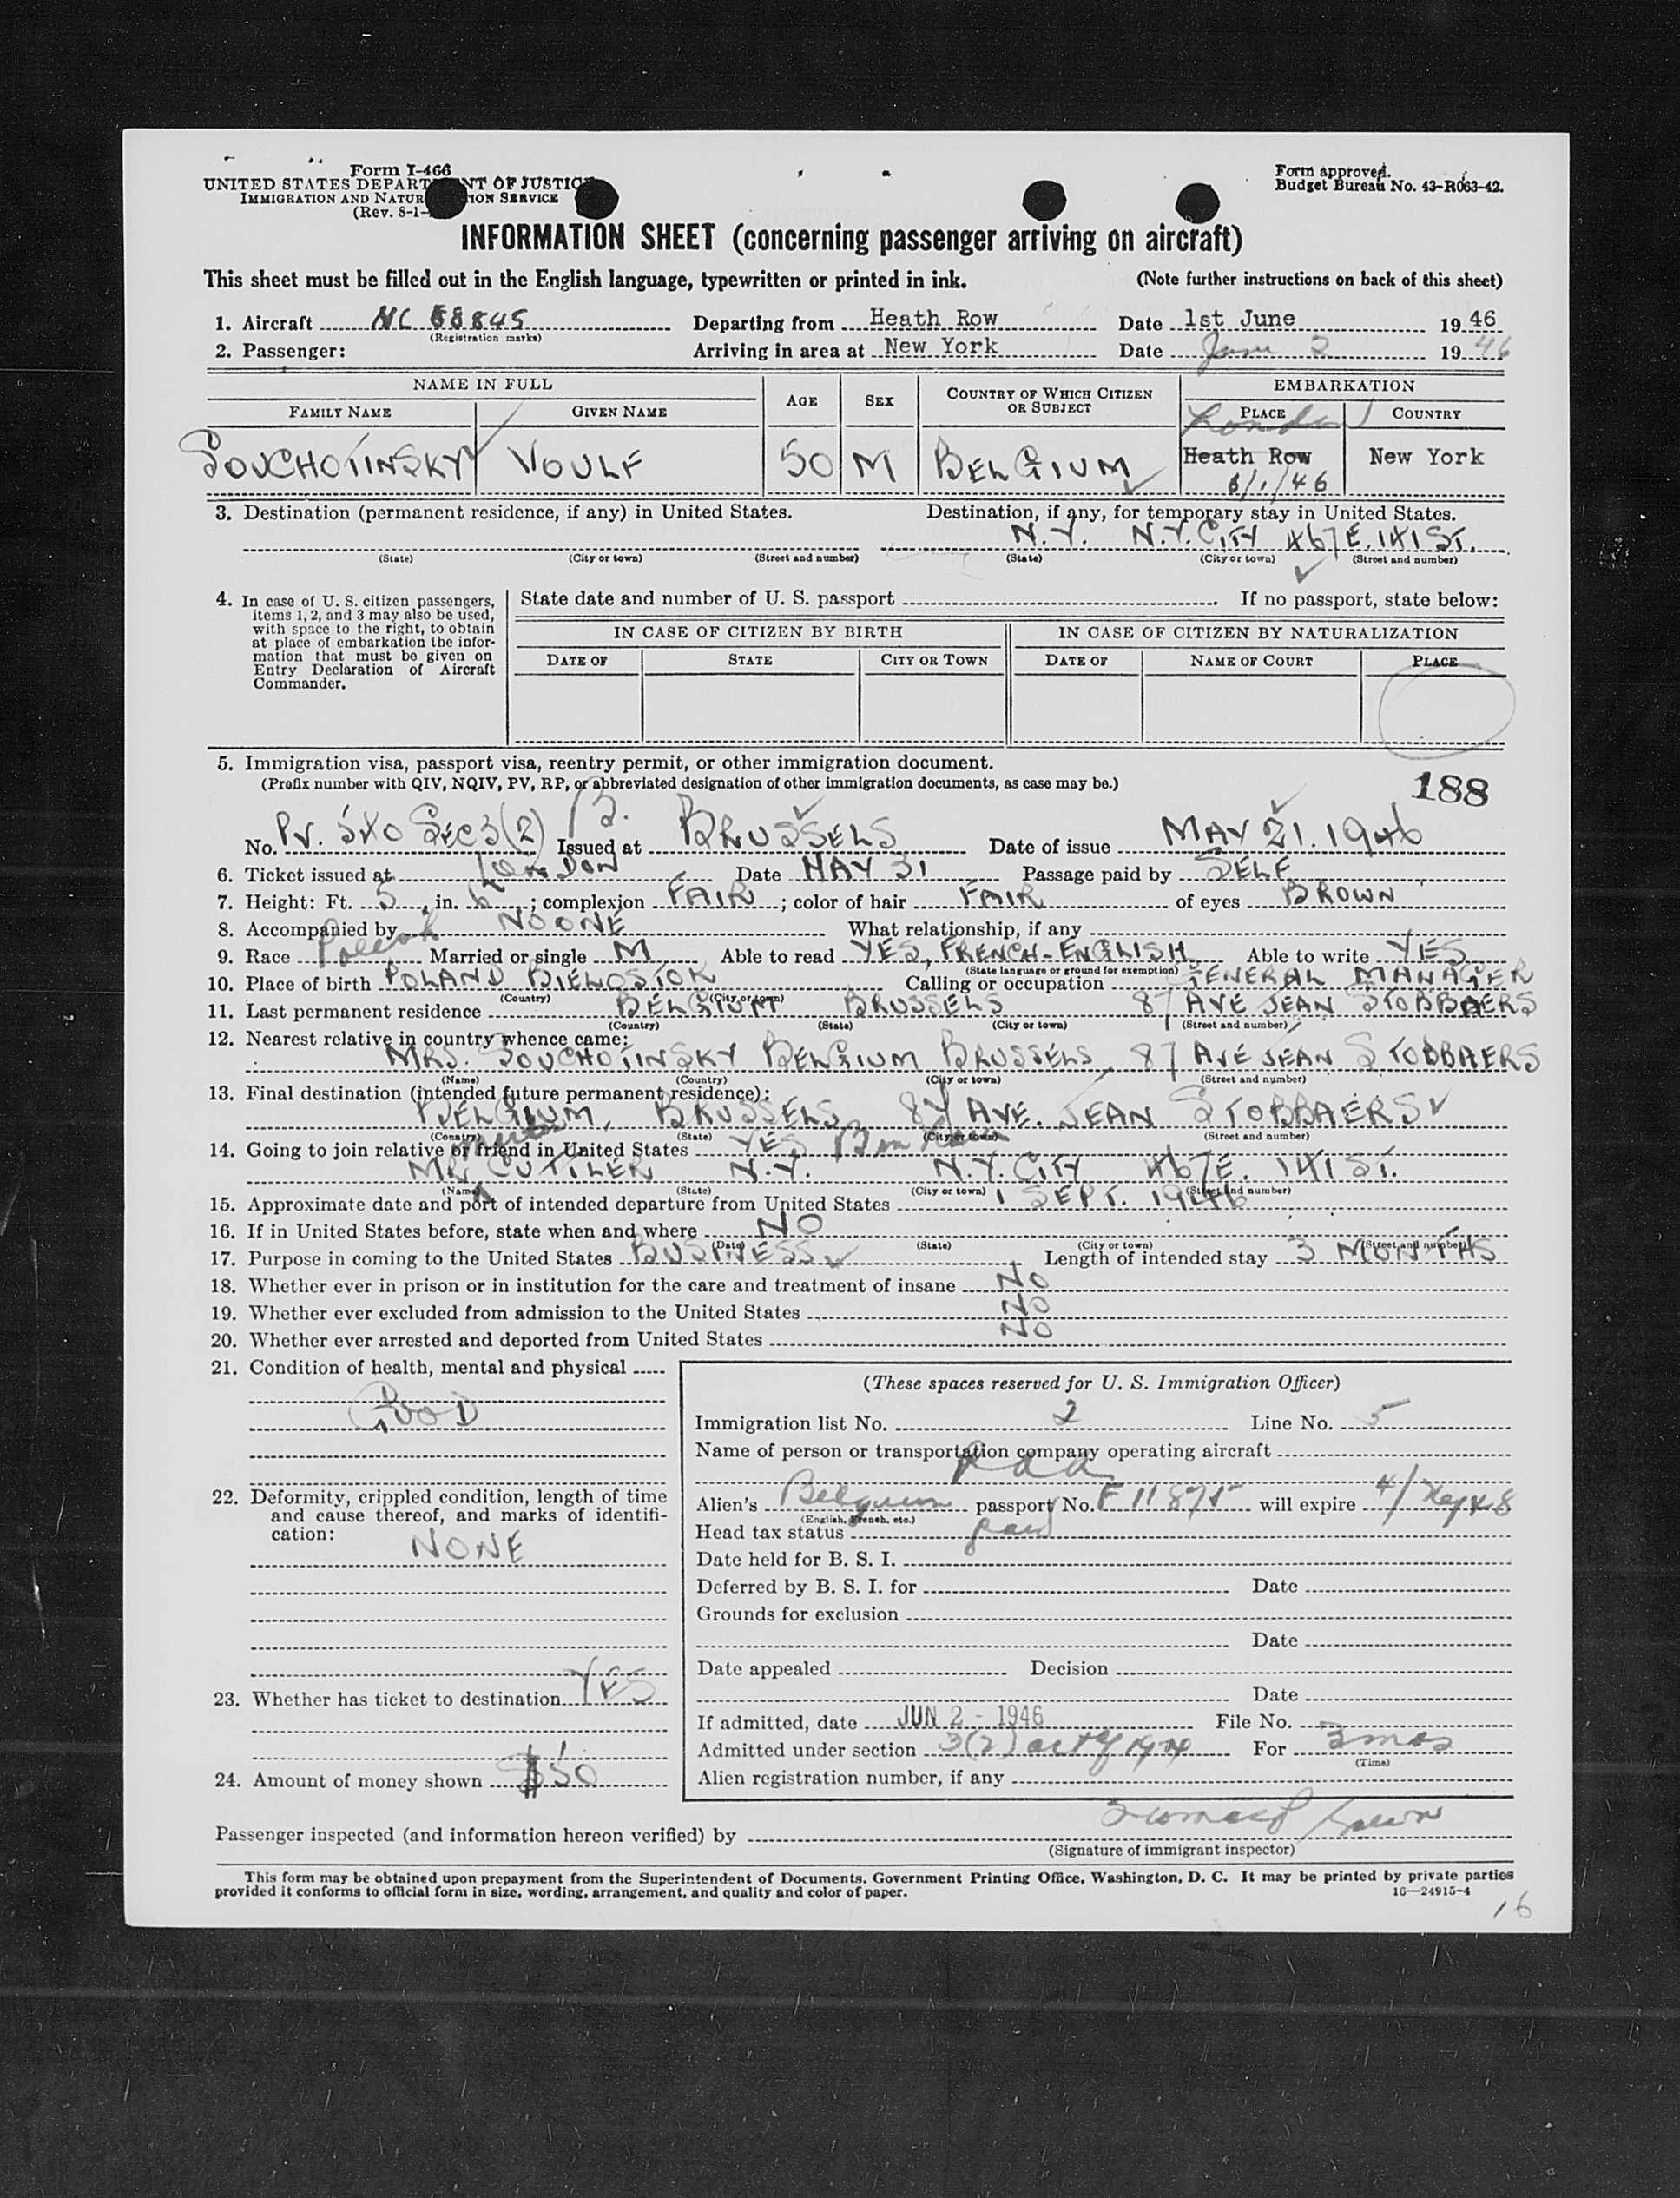 Form I-466
UNITED STATES DEPARTMENT OF JUSTICE
IMMIGRATION AND NATUR ION SERVICE
(Rev. 8-1-
Form approved.
Budget Bureau No. 43-R063-42.
INFORMATION SHEET (concerning passenger arriving on aircraft)
This sheet must be filled out in the English language, typewritten or printed in ink. (Note further instructions on back of this sheet)
1. Aircraft NC 88845 Departing from Heath Row Date 1st June 1946
(Registration marks)
2. Passenger: Arriving in area at New York Date June 2 1946
NAME IN FULL AGE SEX COUNTRY OF WHICH CITIZEN OR SUBJECT EMBARKATION
FAMILY NAME GIVEN NAME PLACE COUNTRY
London
SOUCHOTINSKY VOULF 50 M BELGIUM Heath Row New York
6/1/46
3. Destination (permanent residence, if any) in United States. Destination, if any, for temporary stay in United States.
N.Y. N.Y. CITY 467 E. 141 ST.
(State) (City or town) (Street and number) (State) (City or town) (Street and number)
4. In case of U. S. citizen passengers, items 1, 2, and 3 may also be used, with space to the right, to obtain at place of embarkation the information that must be given on Entry Declaration of Aircraft Commander.
State date and number of U. S. passport . If no passport, state below:
IN CASE OF CITIZEN BY BIRTH IN CASE OF CITIZEN BY NATURALIZATION
DATE OF STATE CITY OR TOWN DATE OF NAME OF COURT PLACE
5. Immigration visa, passport visa, reentry permit, or other immigration document.
(Prefix number with QIV, NQIV, PV, RP, or abbreviated designation of other immigration documents, as case may be.)
188
No. PV. 540 SEC 3(2) B. Issued at BRUSSELS Date of issue MAY 21. 1946
6. Ticket issued at LONDON Date MAY 31 Passage paid by SELF
7. Height: Ft. 5, in. 6; complexion FAIR; color of hair FAIR of eyes BROWN
8. Accompanied by NOONE What relationship, if any
9. Race Married or single M Able to read YES, FRENCH-ENGLISH Able to write YES
(State language or ground for exemption)
10. Place of birth POLAND BIELOSTOK Calling or occupation GENERAL MANAGER
(Country) (City or town)
11. Last permanent residence BELGIUM BRUSSELS 87 AVE JEAN STOBBAERS
(Country) (State) (City or town) (Street and number)
12. Nearest relative in country whence came:
MRS. SOUCHOTINSKY BELGIUM BRUSSELS 87 AVE JEAN STOBBAERS
(Name) (Country) (City or town) (Street and number)
13. Final destination (intended future permanent residence):
BELGIUM, BRUSSELS 87 AVE. JEAN STOBBAERS
(Country) (State) (City or town) (Street and number)
14. Going to join relative or friend in United States YES
MR. CUTTLER N.Y. N.Y. CITY 467 E. 141 ST.
(Name) (State) (City or town) (Street and number)
15. Approximate date and port of intended departure from United States 1 SEPT. 1946
16. If in United States before, state when and where NO
(Date) (State) (City or town) (Street and number)
17. Purpose in coming to the United States BUSINESS Length of intended stay 3 MONTHS
18. Whether ever in prison or in institution for the care and treatment of insane NO
19. Whether ever excluded from admission to the United States NO
20. Whether ever arrested and deported from United States NO
21. Condition of health, mental and physical
GOOD
22. Deformity, crippled condition, length of time and cause thereof, and marks of identification:
NONE
23. Whether has ticket to destination YES
24. Amount of money shown $50
(These spaces reserved for U. S. Immigration Officer)
Immigration list No. 2 Line No. 5
Name of person or transportation company operating aircraft
P a a
Alien's Belgium passport No. F 11875 will expire
(English, French, etc.)
Head tax status paid
Date held for B. S. I.
Deferred by B. S. I. for Date
Grounds for exclusion
Date
Date appealed Decision
Date
If admitted, date JUN 2 - 1946 File No.
Admitted under section 3(2) act of 1924 For 3 mos
(Time)
Alien registration number, if any
Passenger inspected (and information hereon verified) by
(Signature of immigrant inspector)
This form may be obtained upon prepayment from the Superintendent of Documents, Government Printing Office, Washington, D. C. It may be printed by private parties
provided it conforms to official form in size, wording, arrangement, and quality and color of paper. 16—24915-4
16